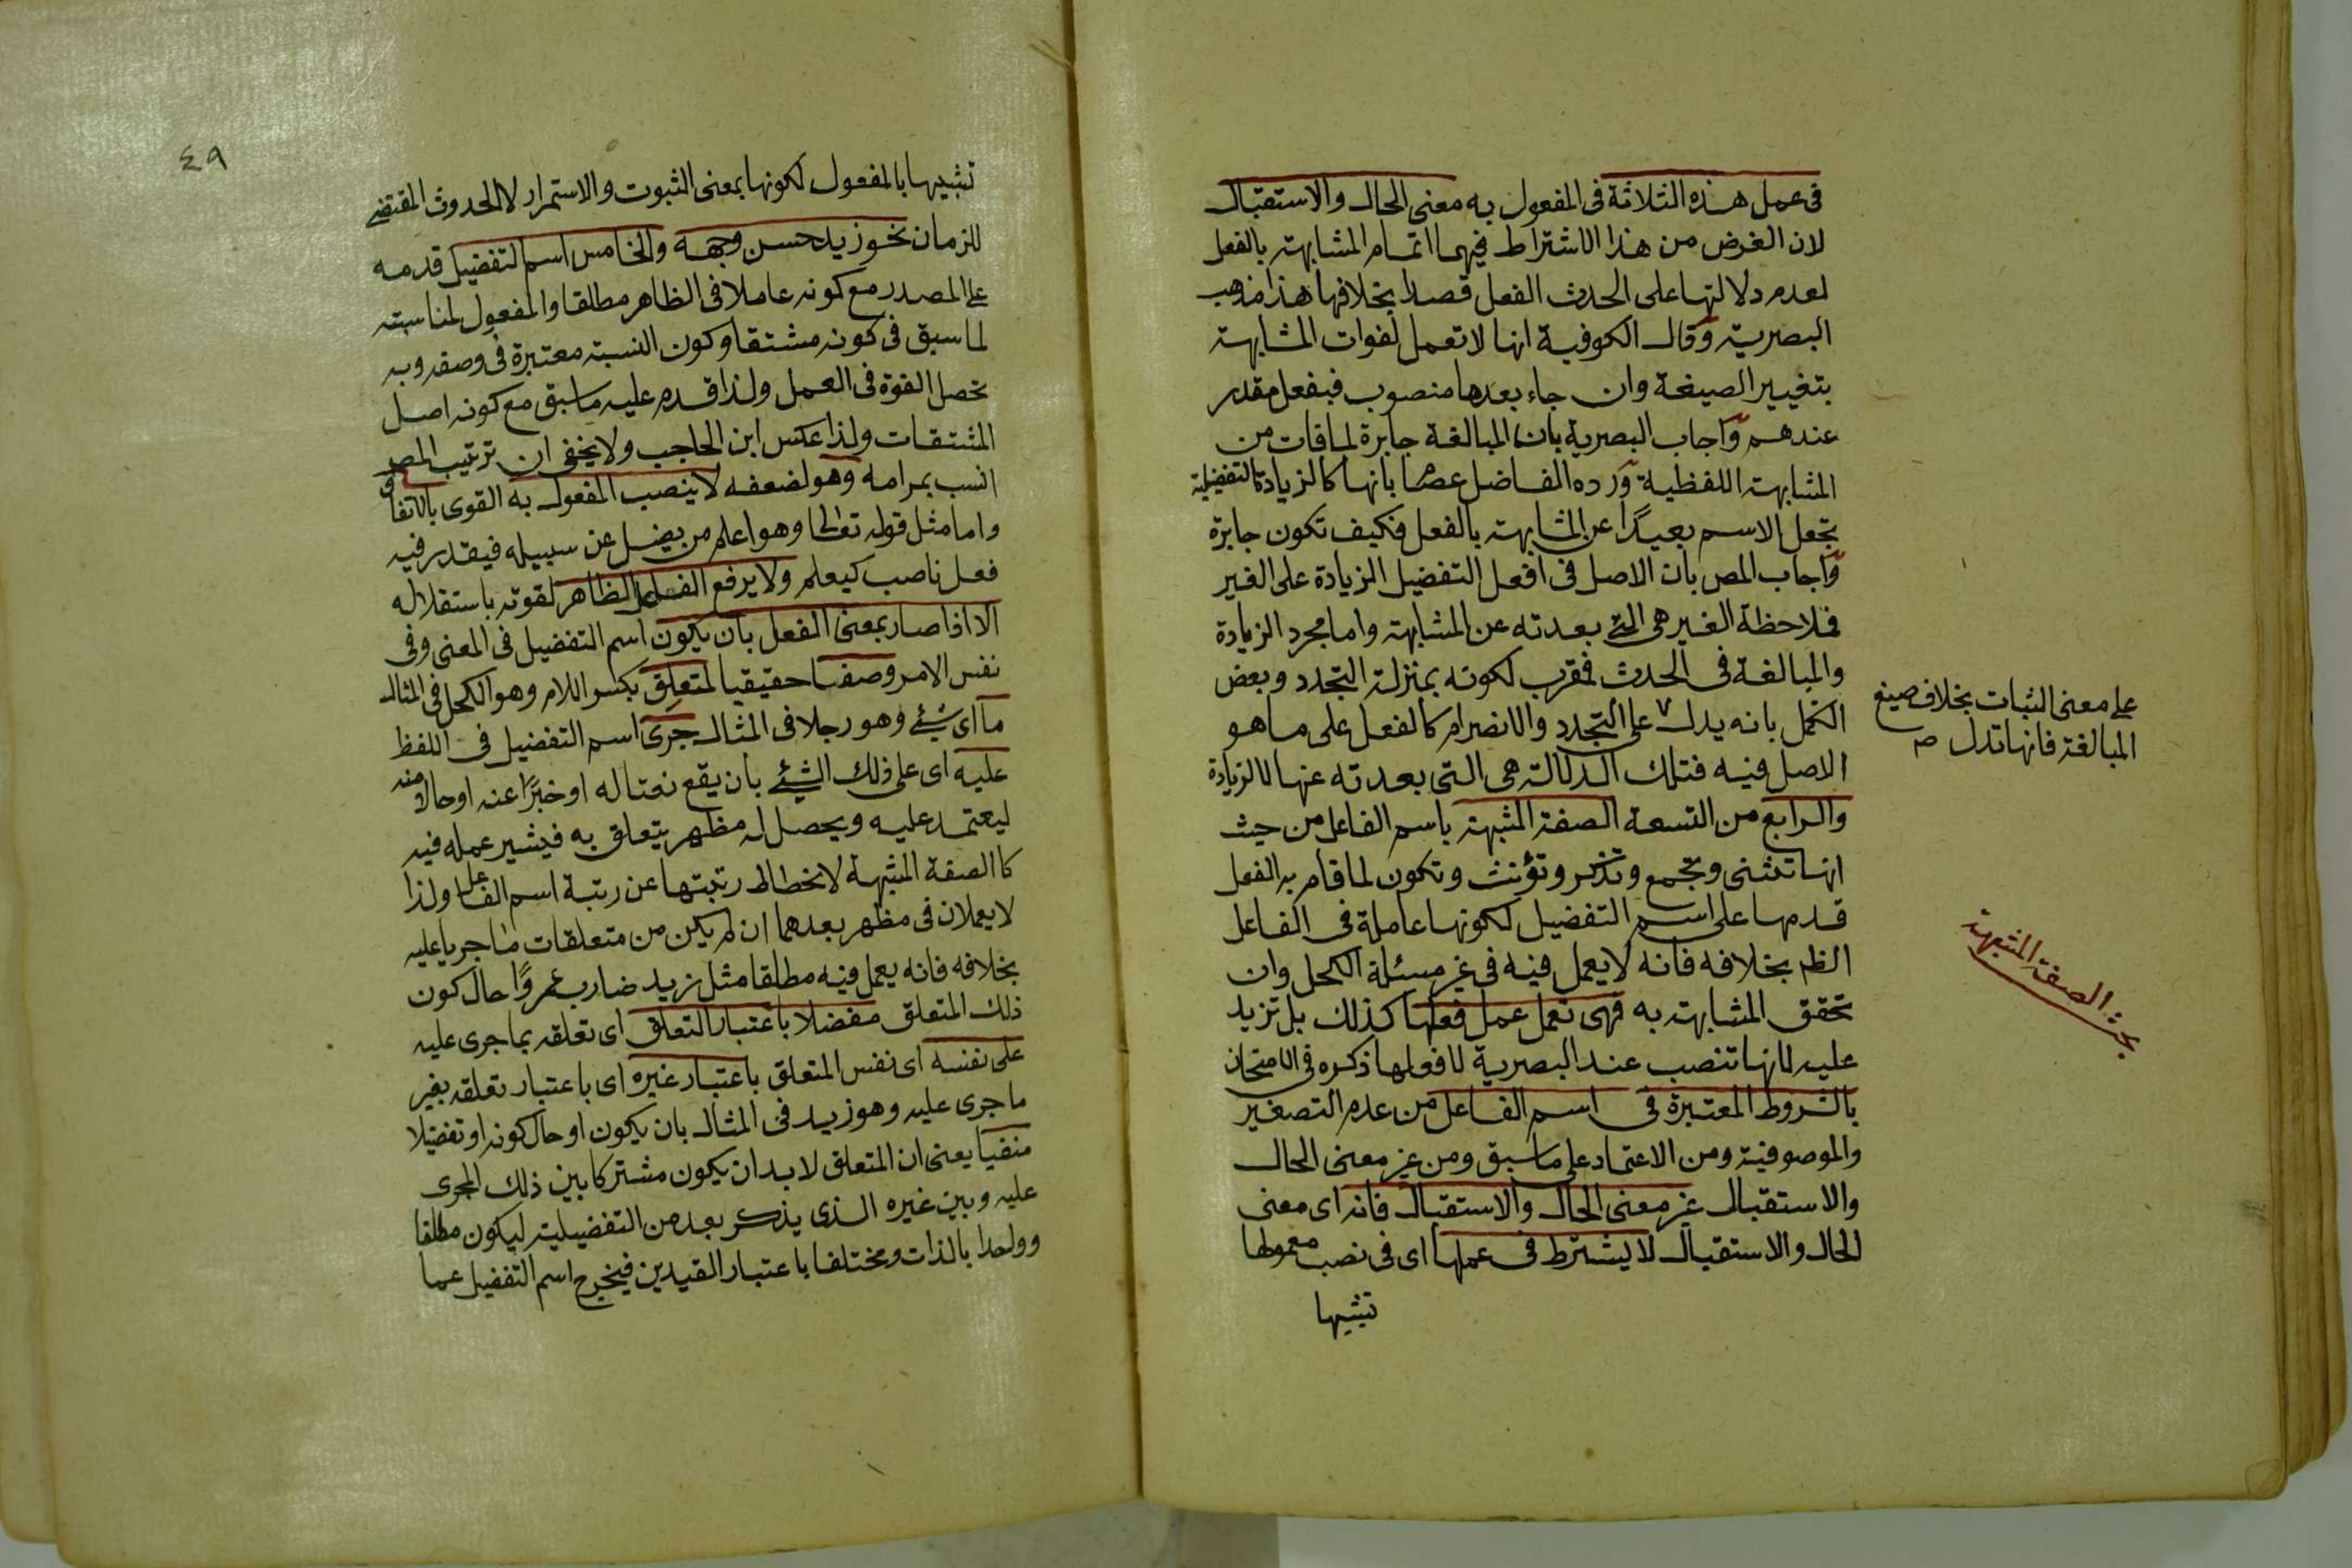 فى عمل هذه الثلاثة فى المفعول به معنى الحال والاستقبال
لان الغرض من هذا الاشتراط فيهما اتمام المشابهة بالفعل
لعدم دلالتها على الحدث الفعل قصدا بخلافها هذا مذهب
البصرية وقال الكوفية انها لا تعمل لفوات المشابهة
بتغيير الصيغة وان جاء بعدها منصوب فبفعل مقدر
عندهم واجاب البصرية بان المبالغة جابرة لما فات من
المشابهة اللفظية ورده الفاضل عصام بانها كالزيادة التفضيلية
تجعل الاسم بعيدا عن المشابهة بالفعل فكيف تكون جابرة
واجاب المص بان الاصل فى افعل التفضيل الزيادة على الغير
فملاحظة الغير هى التى بعدته عن المشابهة واما مجرد الزيادة
والمبالغة فى الحدث فمقرب لكونه بمنزلة التجدد وبعض
الكمل بانه يدل على التجدد والانصرام كالفعل على ما هو
الاصل فيه فتلك الدلالة هى التى بعدته عنها لا الزيادة
والرابع من التسعة الصفة المشبهة باسم الفاعل من حيث
انها تثنى وتجمع وتذكر وتؤنث وتكون لما قام به الفعل
قدمها على اسم التفضيل لكونها عاملة فى الفاعل
الظ بخلافه فانه لا يعمل فيه فى غير مسئلة الكحل وان
تحقق المشابهة به فهى تعمل عمل فعلها كذلك بل تزيد
عليه لانها تنصب عند البصرية لا فعلها ذكره فى الامتحان
بالشروط المعتبرة فى اسم الفاعل من عدم التصغير
والموصوفية ومن الاعتماد على ما سبق ومن غير معنى الحال
والاستقبال غير معنى الحال والاستقبال فانه اى معنى
الحال والاستقبال لا يشترط فى عملها اى فى نصب معمولها
تشبيها
على معنى الثبات بخلاف صيغ
المبالغة فانها تدل صح
بحث الصفة المشبهة
٤٩
تشبيها بالمفعول لكونها بمعنى الثبوت والاستمرار لا الحدوث المقتضى
للزمان نحو زيد حسن وجهه والخامس اسم التفضيل قدمه
على المصدر مع كونه عاملا فى الظاهر مطلقا والمفعول لمناسبته
لما سبق فى كونه مشتقا وكون النسبة معتبرة فى وصفه وبه
تحصل القوة فى العمل ولذا قدم عليه ما سبق مع كونه اصل
المشتقات ولذا عكس ابن الحاجب ولا يخفى ان ترتيب المص
انسب بمرامه وهو لضعفه لا ينصب المفعول به القوى بالاتفاق
واما مثل قوله تعالى وهو اعلم من يضل عن سبيله فيقدر فيه
فعل ناصب كيعلم ولا يرفع الفاعل الظاهر لقوته باستقلاله
الا اذا صار بمعنى الفعل بان يكون اسم التفضيل فى المعنى وفى
نفس الامر وصفا حقيقيا لمتعلق بكسر اللام وهو الكحل فى المثال
ما اى شئ وهو رجلا فى المثال جرى اسم التفضيل فى اللفظ
عليه اى على ذلك الشئ بان يقع نعتا له او خبرا عنه او حالا منه
ليعتمد عليه ويحصل له مظهر يتعلق به فيشير عمله فيه
كالصفة المشبهة لانحطاط رتبتها عن رتبة اسم الفاعل ولذا
لا يعملان فى مظهر بعدهما ان لم يكن من متعلقات ما جريا عليه
بخلافه فانه يعمل فيه مطلقا مثل زيد ضارب عمروا حال كون
ذلك المتعلق مفضلا باعتبار التعلق اى تعلقه بما جرى عليه
على نفسه اى نفس المتعلق باعتبار غيره اى باعتبار تعلقه بغير
ما جرى عليه وهو زيد فى المثال بان يكون او حال كونه او تفضيلا
منفيا يعنى ان المتعلق لا بد ان يكون مشتركا بين ذلك المجرى
عليه وبين غيره الذى يذكر بعد من التفضيلية ليكون مطلقا
وواحدا بالذات ومختلفا باعتبار القيدين فيخرج اسم التفضيل عما